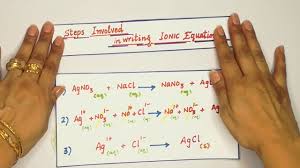 Steps Involved
in writing IONIC Equation
AgNO₃ (aq) + NaCl (aq) → NaNO₃ (aq) + Ag
2) Ag¹⁺ (aq) + NO₃¹⁻ (aq) + Na¹⁺ (aq) + Cl¹⁻ (aq) → Na¹⁺ (aq) + NO₃¹⁻ (aq) + Ag
3) Ag¹⁺ (aq) + Cl¹⁻ (aq) → AgCl (s)